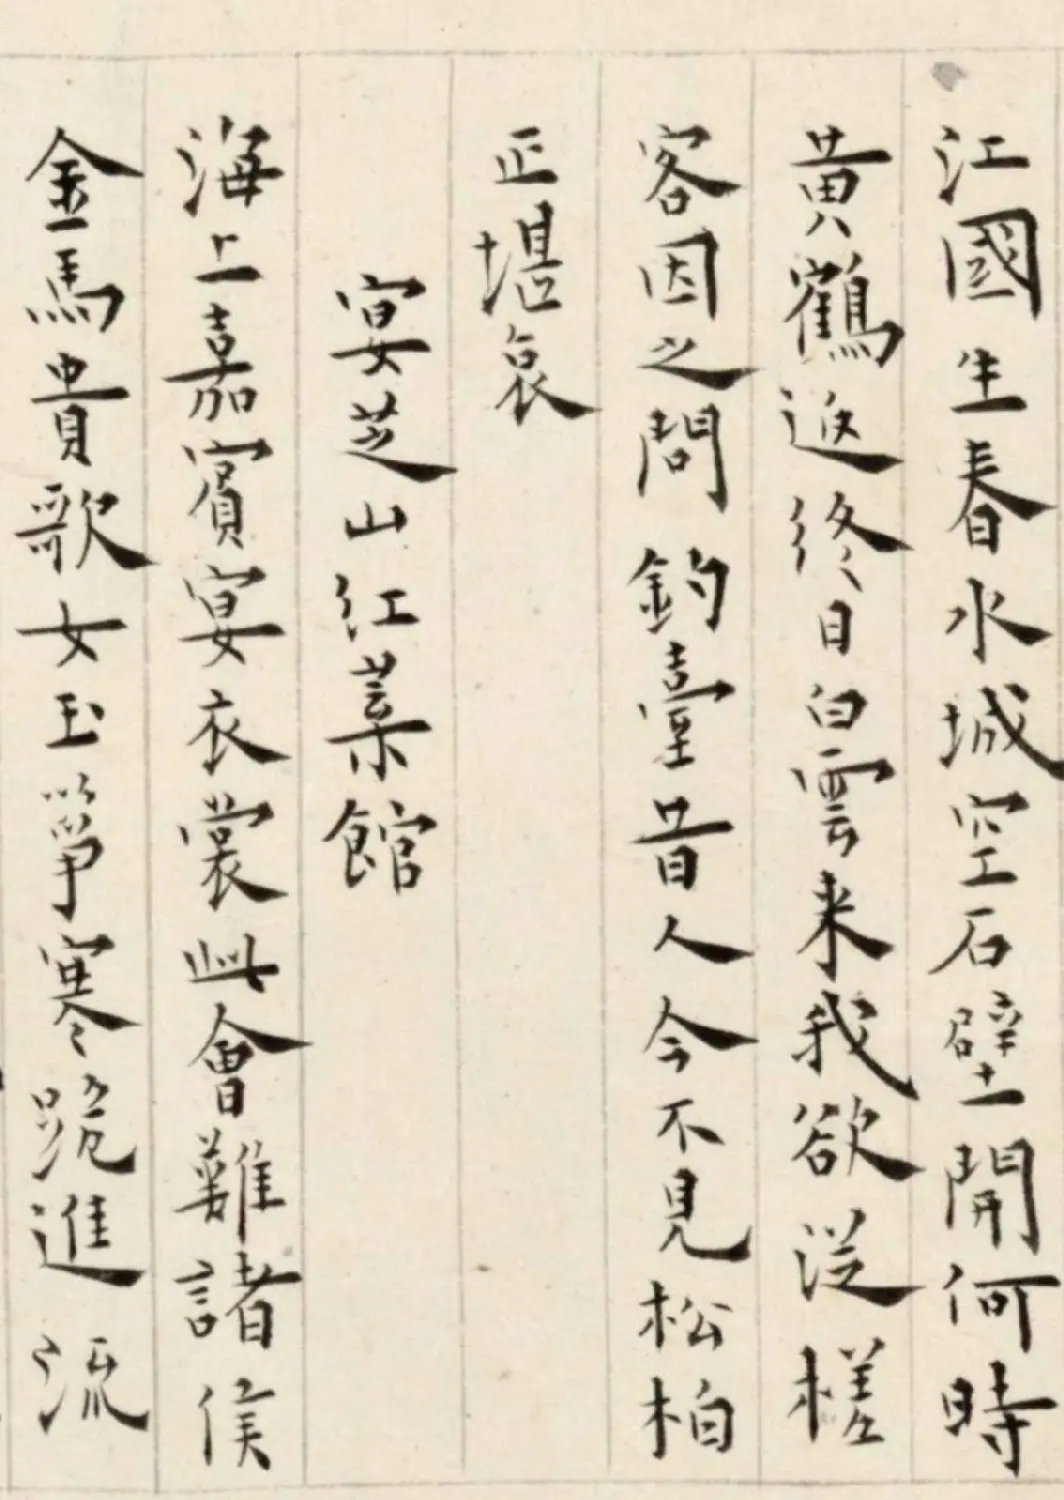 江國生春水城空石壁開何時
黄鶴返終日白雲来我欲従槎
客因之問釣臺昔人今不見松柏
正堪哀
宴芝山江葉館
海上嘉賓宴衣裳此會難諸侯
金馬貴歌女玉箏寒跪進流